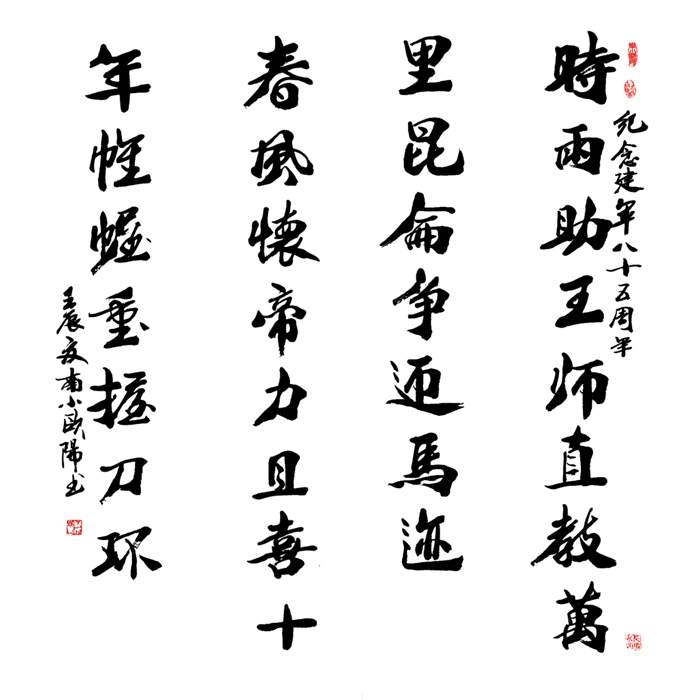 纪念建军八十五周年
時雨助王师直教萬
里昆侖争迎馬迹
春風懷帝力且喜十
年帷幄重握刀环
壬辰夏南小歐陽书